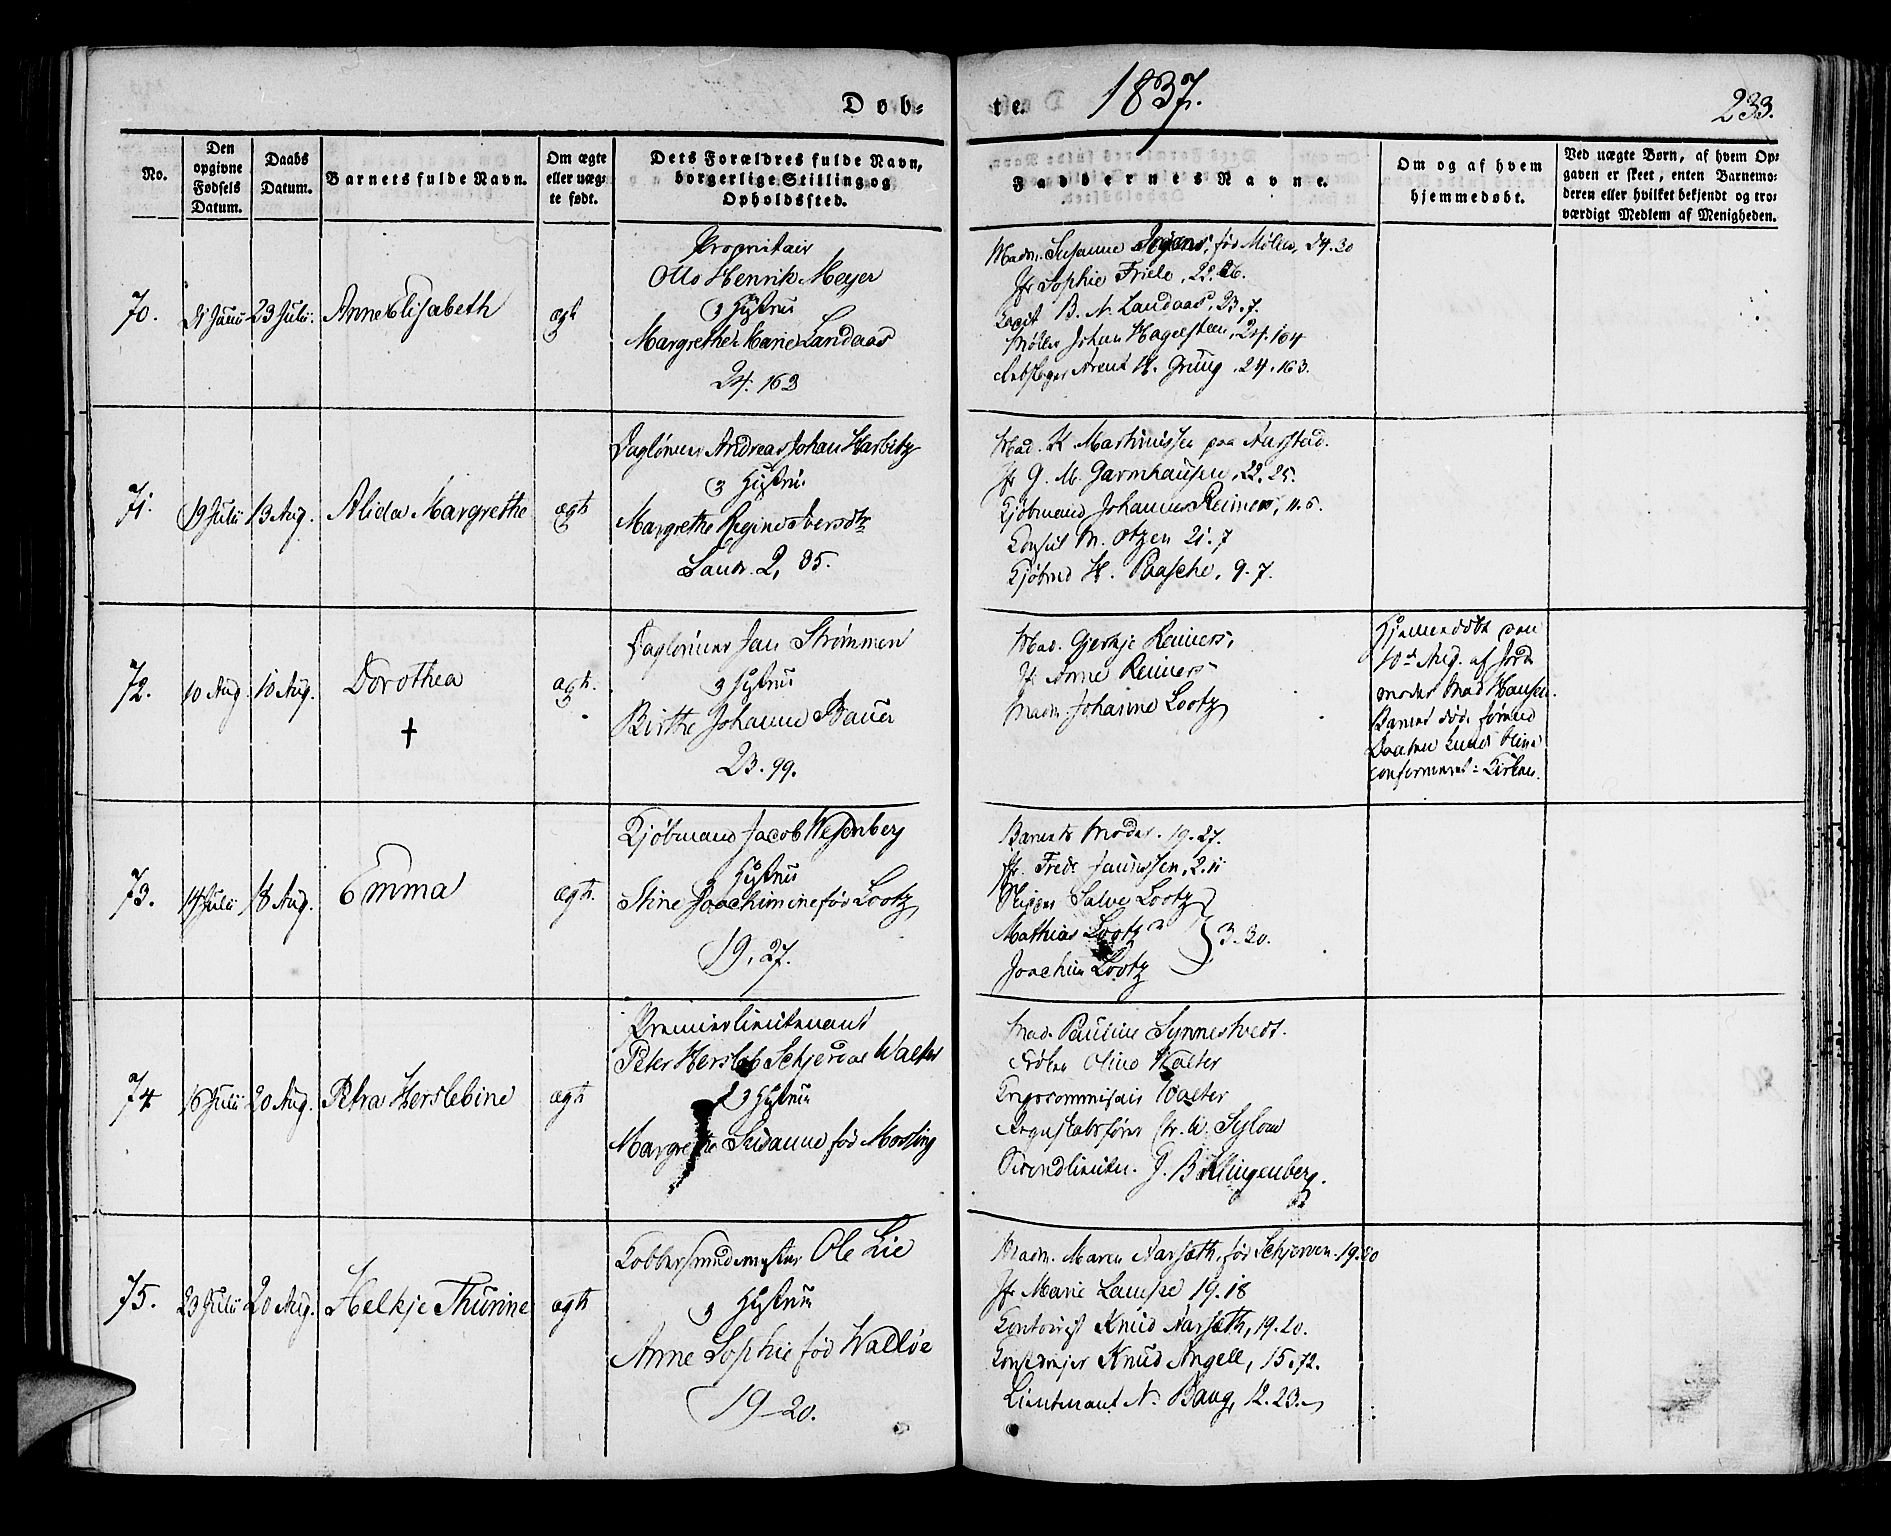 Døb-
te.
1837.
233.
No.
Den opgivne Fødsels Datum.
Daabs Datum.
Barnets fulde Navn.
Om ægte eller uægte født.
Dets Forældres fulde Navn, borgerlige Stilling og Opholdssted.
Faddernes Navne.
Om og af hvem hjemmedøbt.
Ved uægte Børn, af hvem Opgaven er skeet, enten Barnemoderen eller hvilket bekjendt og troværdigt Medlem af Menigheden.
70.
23 Julii
Anne Elisabeth
ægte
Proprietair
Otto Henrik Meyer
& Hustrue
Margrethe Marie Landaas
24. 163
Madm. Susanne født Møller, 24.30
Jfr Sophie Friele, 22.26.
B. N. Landaas, 23.7.
Møller Johan Hagelsteen, 24.164
Arent H. Grung. 24.163.
71.
19 Julii
13 Aug.
Alida Margrethe
ægte
Daglønner Andreas Johan Harbitz
& Hustrue
Margrethe Regine Iversdtr
2, 35.
Mad. K. Martinussen paa Aarstad.
Jfr G. M. Garmhausen, 22.25.
Kjøbmand Johannes Reimers, 11.6.
Consul M. Otzen 21.7
Kjøbmd H. Paasche, 9.7.
72.
10 Aug.
10 Aug.
Dorothea
†
ægte
Daglønner Jan Strømmen
& Hustrue
Birthe Johanne Bauer
23.99.
Mad. Gjertje Reimers,
Jfr Anne Reimers
Madm. Johanne Lootz
Hjemmedøbt den
10de Aug. af Jord
moder Mad Hansen.
Barnet døde førend
Daaben
confirmeret i Kirken.
73.
14 Julii
18 Aug.
Emma
ægte
Kjøbmand Jacob Wesenberg
Hustrue
Stine Joachimine født Lootz
19.27.
Barnets Moder. 19.27.
Jfr. Fredr. Janussen, 2.11
Skipper Salve Lootz
Mathias Lootz
3.30.
Joachim Lootz
74
16 Julii
20 Aug.
Petra Herslebine
ægte
Premierlieutenant
Peter Hersleb Schjerdal Walter
& Hustrue
Margrethe Susanne født Mossing
Mad. Pauline Synnestvedt.
Frøken Oline Walter
Krigscommisair Walter
Regnskabsfører Chr. W. Sylow
Secondlieuten. J. B. Klingenberg.
75.
23 Julii
20 Aug.
Helkje Thurine
ægte
Kobbersmedmester Ole Lie
& Hustrue
Anne Sophie født Walløe
19-20.
Madm. Maren Aarsæth, født Schjerven. 19.20
Jfr Marie Lampe 19.18
Contorist Knud Aarsæth, 19.20.
Knud Angell, 15.72.
Lieutenant N. Baug, 12.23.